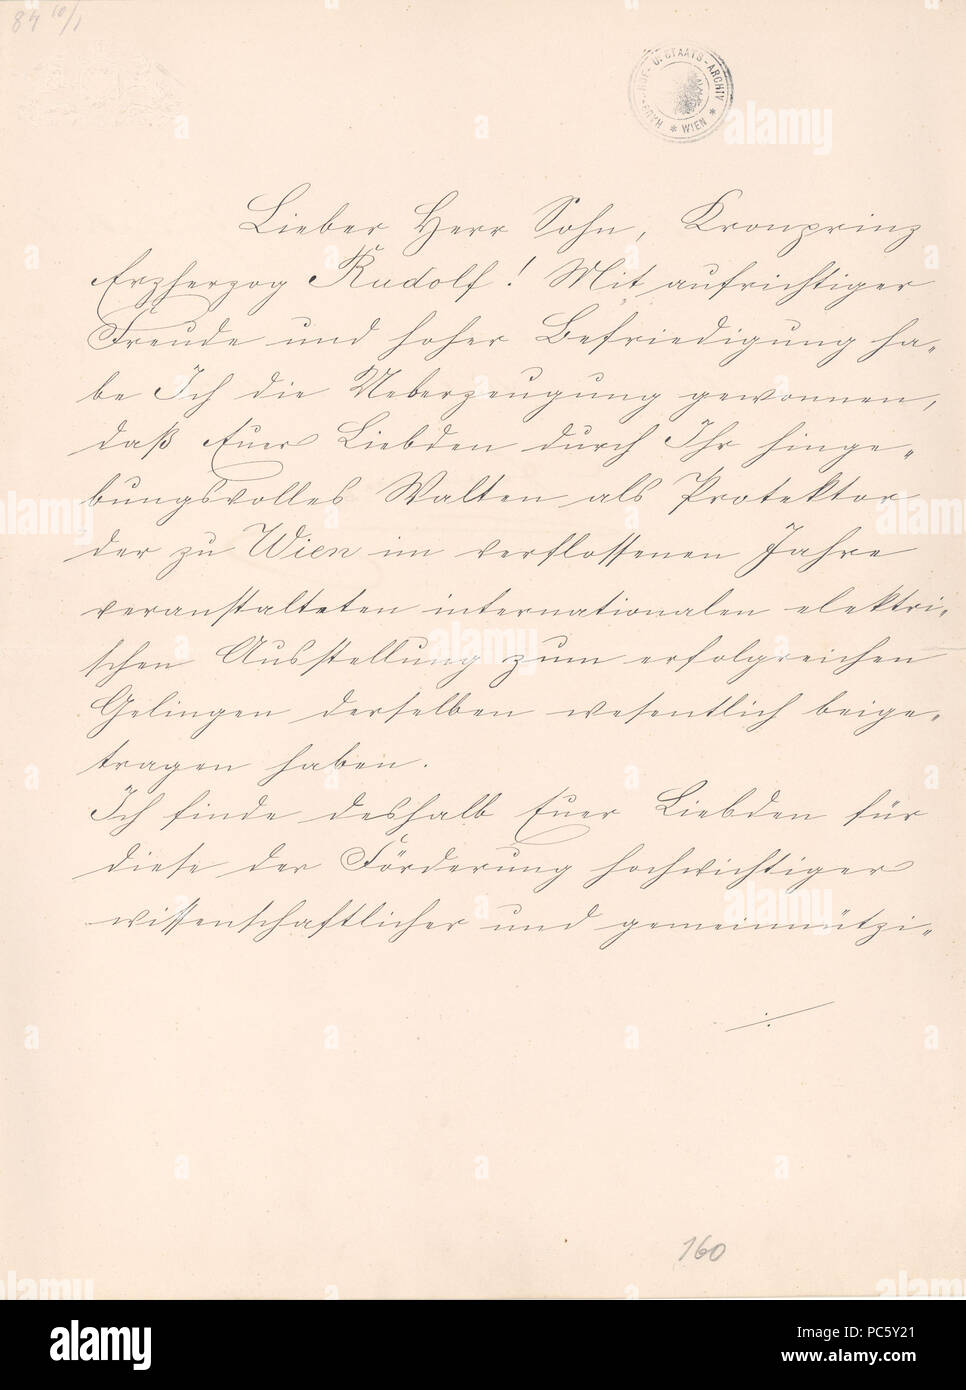 84 10/1
HAUS-, HOF- U. STAATS-ARCHIV
* WIEN *
Lieber Herr Sohn, Kronprinz
Erzherzog Rudolf! Mit aufrichtiger
Freude und hoher Befriedigung ha-
be Ich die Ueberzeugung gewonnen,
daß Euer Liebden durch Ihr hinge-
bungsvolles Walten als Protektor
der zu Wien im verflossenen Jahre
veranstalteten internationalen elektri-
schen Ausstellung zum erfolgreichen
Gelingen derselben wesentlich beige-
tragen haben.
Ich finde deshalb Euer Liebden für
diese der Förderung hochwichtiger
wissenschaftlicher und gemeinnützi-
./.
160
alamy
Image ID: PC5Y21
www.alamy.com